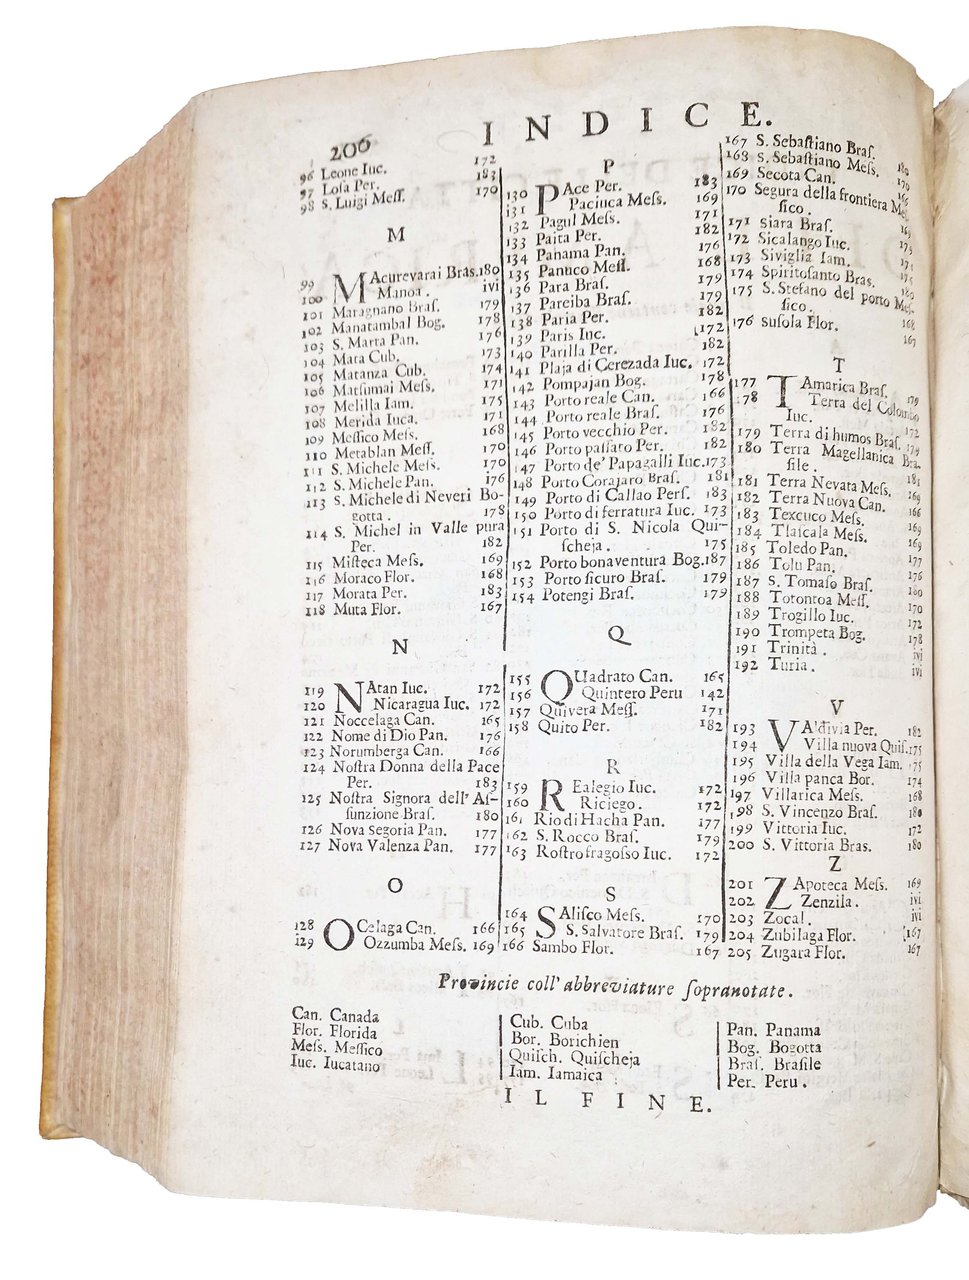 206
INDICE.
96 Leone Iuc. 172
97 Losa Per. 183
98 S. Luigi Meſſ. 170
M
99 MAcurevarai Bras. 180
100 Manoa. ivi
101 Maragnano Braſ. 179
102 Manatambal Bog. 178
103 S. Marta Pan. 176
104 Mata Cub. 173
105 Matanza Cub. 174
106 Matſumai Meſs. 171
107 Melilla Iam. 175
108 Merida Iuca. 171
109 Meſſico Meſs. 168
110 Metablan Meſſ. 170
111 S. Michele Meſs. 170
112 S. Michele Pan. 176
113 S. Michele di Neveri Bo-
gotta. 178
114 S. Michel in Valle pura
Per. 182
115 Miſteca Meſs. 169
116 Moraco Flor. 168
117 Morata Per. 183
118 Muta Flor. 167
N
119 NAtan Iuc. 172
120 Nicaragua Iuc. 172
121 Noccelaga Can. 165
122 Nome di Dio Pan. 176
123 Norumberga Can. 166
124 Noſtra Donna della Pace
Per. 183
125 Noſtra Signora dell' Aſ-
ſunzione Braſ. 180
126 Nova Segoria Pan. 177
127 Nova Valenza Pan. 177
O
128 OCelaga Can. 166
129 Ozzumba Meſs. 169
P
130 PAce Per. 183
131 Paciuca Meſs. 169
132 Pagul Meſs. 171
133 Paita Per. 182
134 Panama Pan. 176
135 Panuco Meſſ. 168
136 Para Braſ. 179
137 Pareiba Braſ. 179
138 Paria Per. 182
139 Paris Iuc. 172
140 Parilla Per. 182
141 Plaja di Cerezada Iuc. 172
142 Pompajan Bog. 178
143 Porto reale Can. 166
144 Porto reale Braſ. 176
145 Porto vecchio Per. 182
146 Porto paſſato Per. 182
147 Porto de' Papagalli Iuc. 173
148 Porto Corajaro Braſ. 181
149 Porto di Callao Perſ. 183
150 Porto di ferratura Iuc. 173
151 Porto di S. Nicola Qui-
ſcheja. 175
152 Porto bonaventura Bog. 187
153 Porto ſicuro Braſ. 179
154 Potengi Braſ. 179
Q
155 QUadrato Can. 165
156 Quintero Peru 142
157 Quivera Meſſ. 171
158 Quito Per. 182
R
159 REalegio Iuc. 172
160 Riciego. 172
161 Rio di Hacha Pan. 177
162 S. Rocco Braſ. 179
163 Roſtro fragoſo Iuc. 172
S
164 SAliſco Meſs. 170
165 S. Salvatore Braſ. 179
166 Sambo Flor. 167
167 S. Sebaſtiano Braſ. 180
168 S. Sebaſtiano Meſs. 170
169 Secota Can. 165
170 Segura della frontiera Meſ
ſico. 169
171 Siara Braſ. 179
172 Sicalango Iuc. 171
173 Siviglia Iam. 175
174 Spiritoſanto Bras. 180
175 S. Stefano del porto Meſ.
ſico. 168
176 Suſola Flor. 167
T
177 TAmarica Braſ. 179
178 Terra del Colombo
Iuc. 172
179 Terra di humos Braſ. 179
180 Terra Magellanica Bra.
ſile. 181
181 Terra Nevata Meſs. 169
182 Terra Nuova Can. 166
183 Texcuco Meſs. 169
184 Tlaſcala Meſs. 169
185 Toledo Pan. 177
186 Tolu Pan. 176
187 S. Tomaſo Braſ. 180
188 Totontoa Meſſ. 170
189 Trogillo Iuc. 172
190 Trompeta Bog. 178
191 Trinità. ivi
192 Turia. ivi
V
193 VAldivia Per. 182
194 Villa nuova Quiſ. 175
195 Villa della Vega Iam. 175
196 Villa panca Bor. 174
197 Villarica Meſs. 168
198 S. Vincenzo Braſ. 180
199 Vittoria Iuc. 172
200 S. Vittoria Bras. 180
Z
201 ZApoteca Meſs. 169
202 Zenzila. ivi
203 Zocal. ivi
204 Zubilaga Flor. 167
205 Zugara Flor. 167
Provincie coll' abbreviature ſopranotate.
Can. Canada
Flor. Florida
Meſs. Meſſico
Iuc. Iucatano
Cub. Cuba
Bor. Borichien
Quiſch. Quiſcheja
Iam. Iamaica
Pan. Panama
Bog. Bogotta
Braſ. Braſile
Per. Peru.
IL FINE.